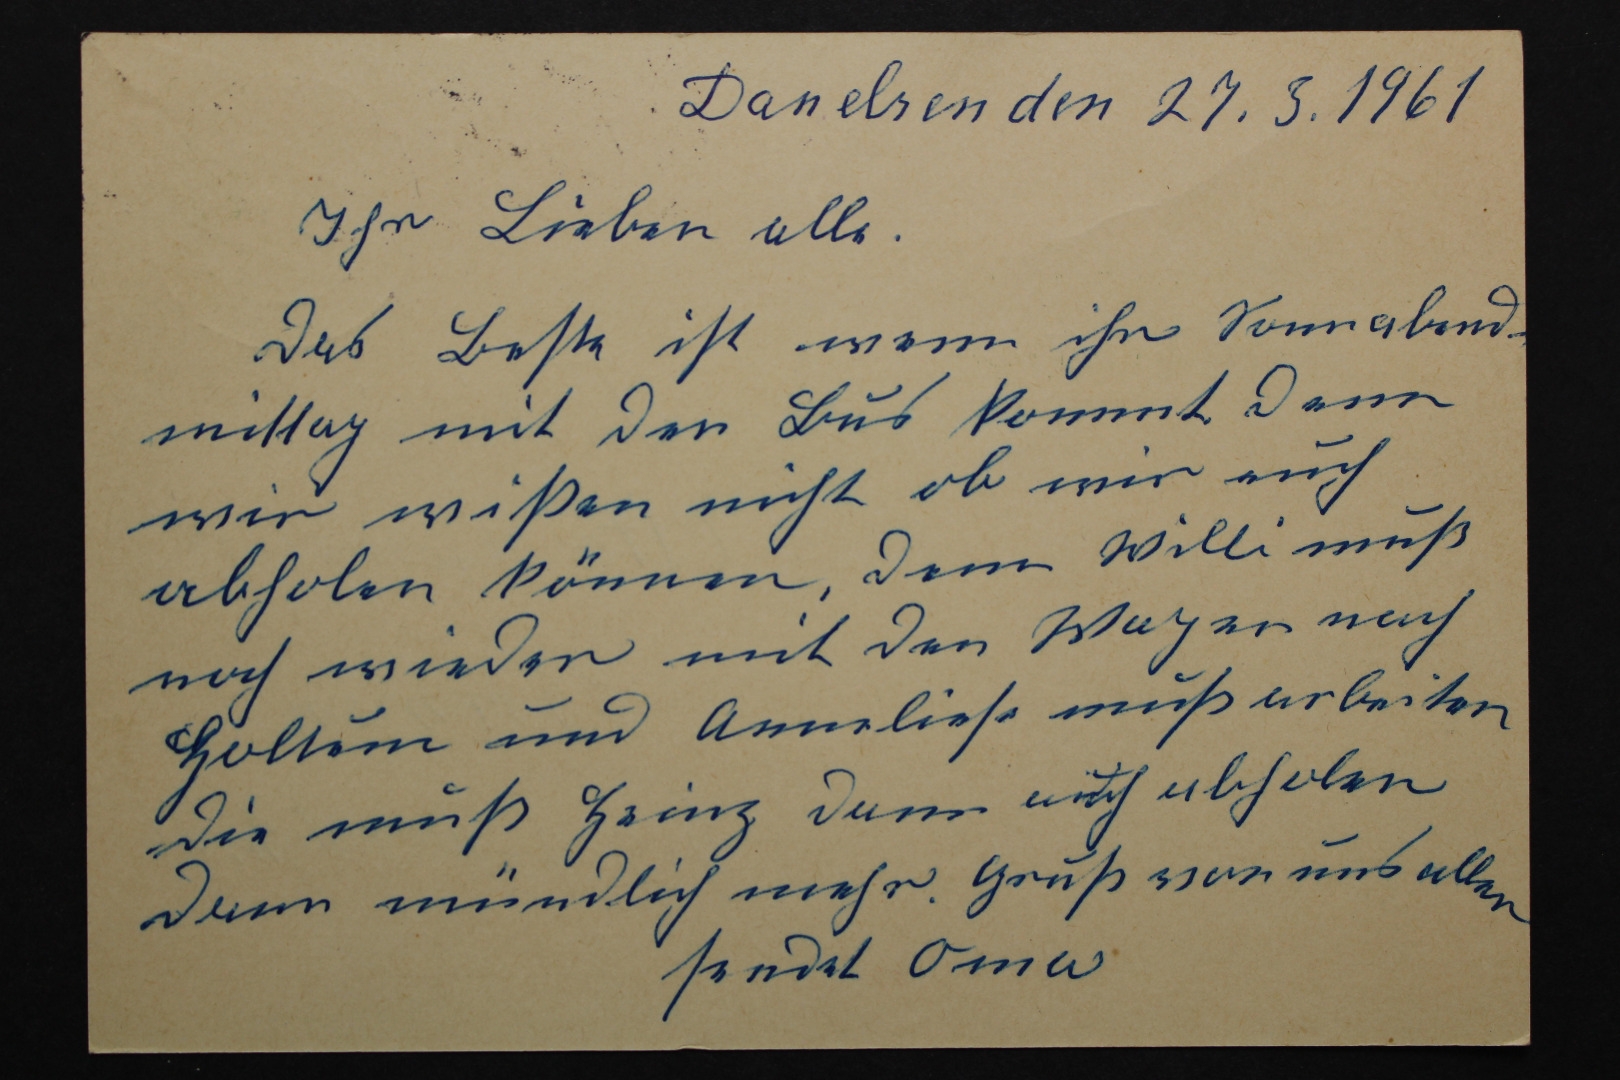 Danelsen den 27. 3. 1961
Ihr Lieben alle.
Das Beste ist wenn ihr Sonnabend-
mittag mit den Bus kommt. Denn
wir wißen nicht ob wir euch
abholen können, denn Willi muß
noch wieder mit den Wagen nach
Holtum und Anneliese muß arbeiten
die muß Heinz dann auch abholen
dann mündlich mehr. Gruß von uns allen
sendet Oma